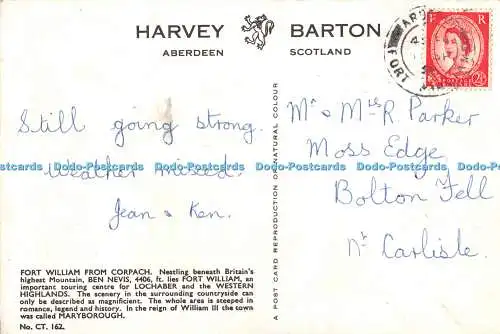 HARVEY BARTON
ABERDEEN SCOTLAND
Still going strong.
Weather mixed.
Jean & Ken.
Mr & Mrs R. Parker
Moss Edge
Bolton Fell
Nr Carlisle.
A POST CARD REPRODUCTION OF NATURAL COLOUR
FORT WILLIAM FROM CORPACH. Nestling beneath Britain's
highest Mountain, BEN NEVIS, 4406, ft. lies FORT WILLIAM, an
important touring centre for LOCHABER and the WESTERN
HIGHLANDS. The scenery in the surrounding countryside can
only be described as magnificent. The whole area is steeped in
romance, legend and history. In the reign of William III the town
was called MARYBOROUGH.
No. CT. 162.
E R
FORT
Dodo-Postcards Dodo-Postcards Dodo-Postcards Dodo-Postcards Dodo-Postcards Dodo-Postcards